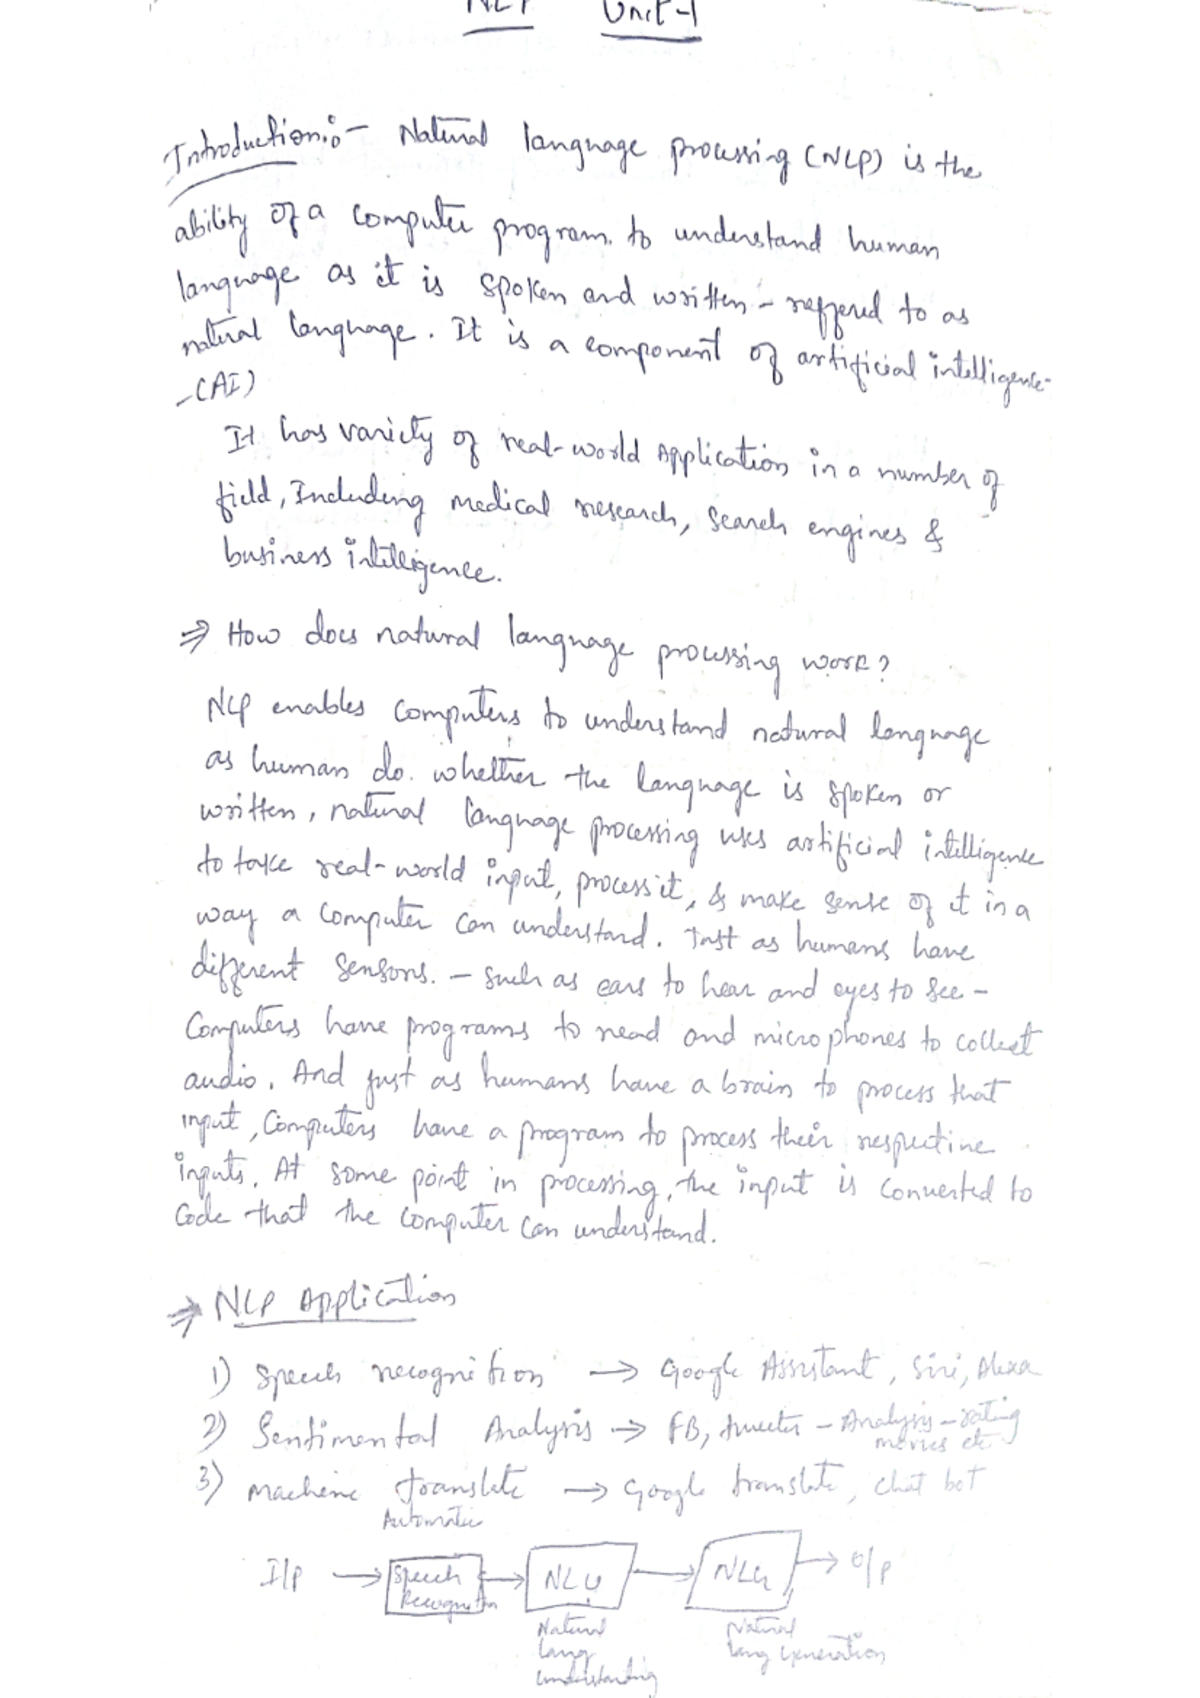 NLP Unit-1
Introduction:- Natural language processing (NLP) is the
ability of a computer program. to understand human
language as it is spoken and written - reffered to as
natural language. It is a component of artificial intelligence-
-(AI)
It has variety of real-world Application in a number of
field, Including medical research, Search engines &
business intelligence.
⇒ How does natural language processing work?
NLP enables computers to understand natural language
as human do. whether the language is spoken or
written, natural language processing uses artificial intelligence
to take real-world input, process it, & make sense of it in a
way a computer can understand. Just as humans have
different sensors. - such as ears to hear and eyes to see -
Computers have programs to read and microphones to collect
audio. And just as humans have a brain to process that
input, Computers have a program to process their respective
inputs. At some point in processing, the input is converted to
Code that the computer can understand.
⇒ NLP Application
1) Speech recognition → Google Assistant, Siri, Alexa
2) Sentimental Analysis → FB, tweeter - Analysis - rating
movies etc
3) machine translate → Google translate, chat bot
Automatic
I/p → Speech Recognition → NLU → NLG → O/p
Natural Lang Understanding
Natural Lang Generation